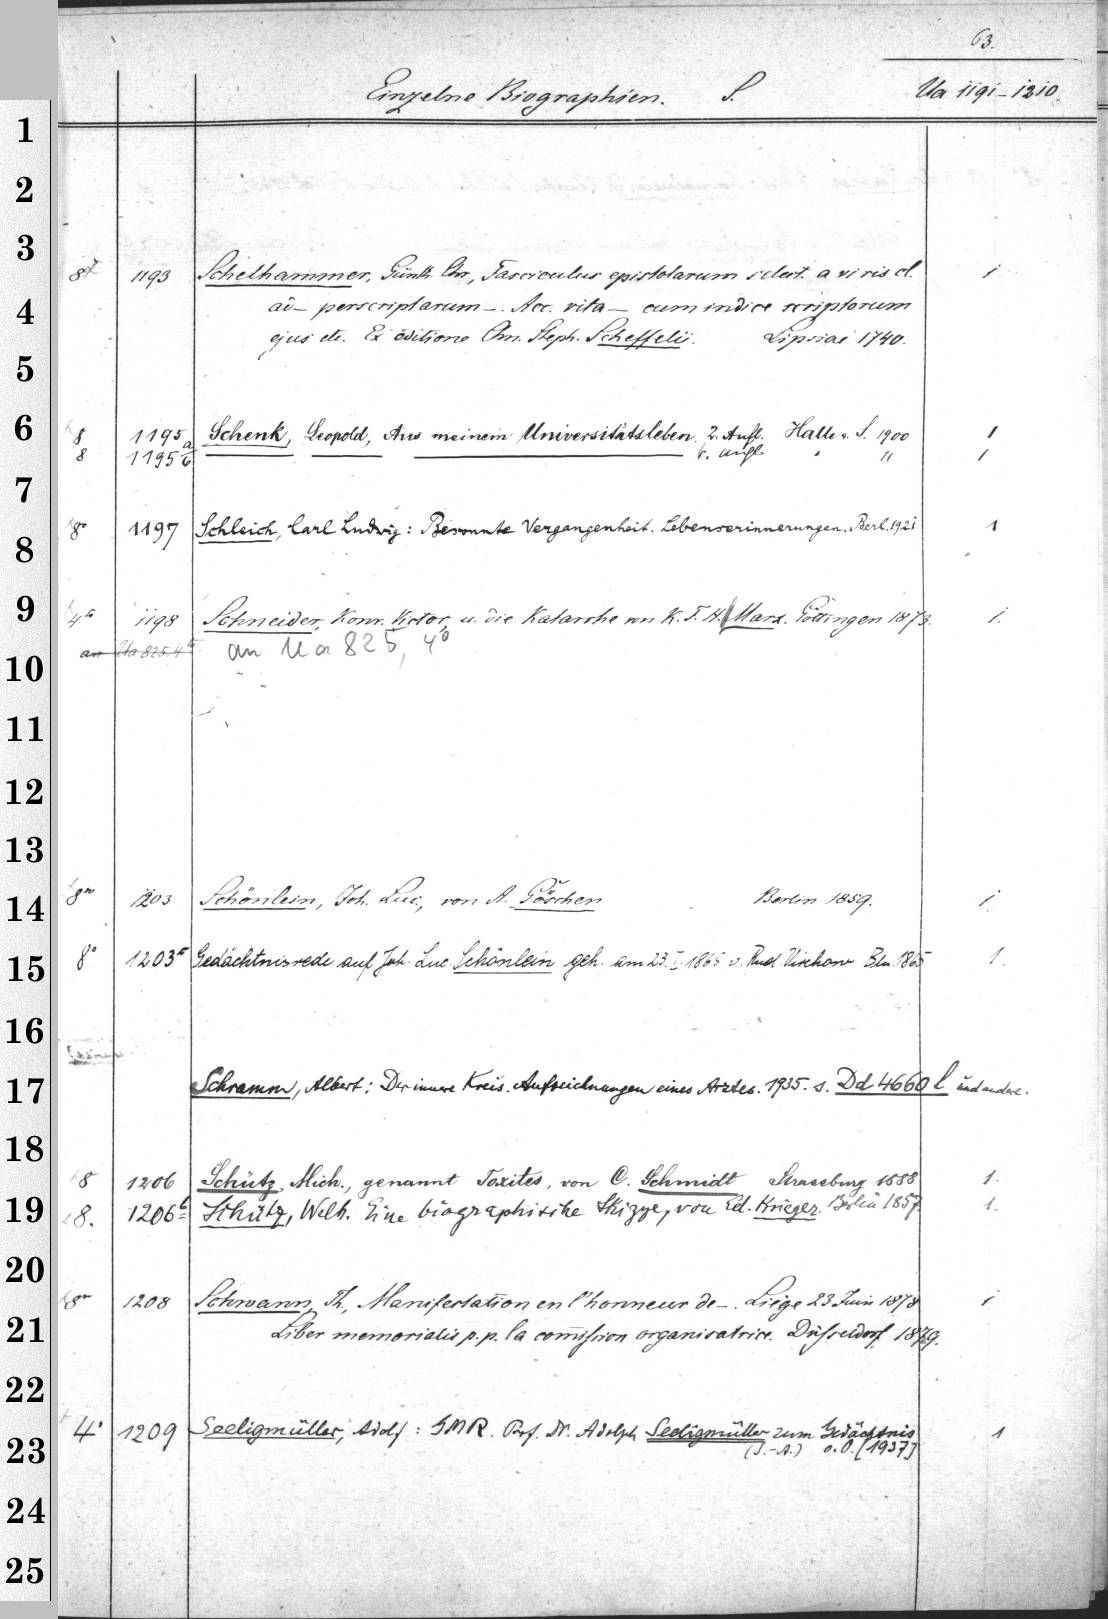 63.
Einzelne Biographien. S. Ua 1191–1210.
1
2
3
8° 1193 Schelhammer, Günth. Chr., Fasciculus epistolarum select. a viris cl. 1
4
ad – perscriptarum –. Acc. vita – cum indice scriptorum
ejus etc. Ex editione Chn. Steph. Scheffelii. Lipsiae 1740.
5
6
8 1195a Schenk, Leopold, Aus meinem Universitätsleben. 2. Aufl. Halle a. S. 1900 1
8 1195b 5. Aufl. " " 1
7
8° 1197 Schleich, Carl Ludwig: Besonnte Vergangenheit. Lebenserinnerungen. Berl. 1921 1
8
9
4to 1198 Schneider, Konr. Victor, u. die Katarrhe von K. F. H. Marx. Göttingen 1873. 1.
an Ua 825, 4to an Ua 825, 4°
10
11
12
13
8vo 1203 Schönlein, Joh. Luc., von A. Göschen Berlin 1859. 1
14
8° 1203a Gedächtnisrede auf Joh. Luc. Schönlein geh. am 23. I. 1865 v. Rud. Virchow Bln. 1865 1.
15
16
17
Schramm, Albert: Der innere Kreis. Aufzeichnungen eines Arztes. 1935. s. Dd 4660 l und andere.
18
8 1206 Schütz, Mich., genannt Toxites, von C. Schmidt Strassburg 1888 1.
19
8. 1206b Schütz, Welh. Eine biographische Skizze, von Ed. Krieger. Berlin 1857. 1.
20
8vo 1208 Schwann, Th., Manifestation en l'honneur de –. Liége 23 Juin 1878 1
21
Liber memorialis p. p. la commission organisatrice. Düsseldorf. 1879.
22
4° 1209 Seeligmüller, Adolf: GMR. Prof. Dr. Adolph Seeligmüller zum Gedächtnis 1
23
(S.-A.) o. O. [1937]
24
25